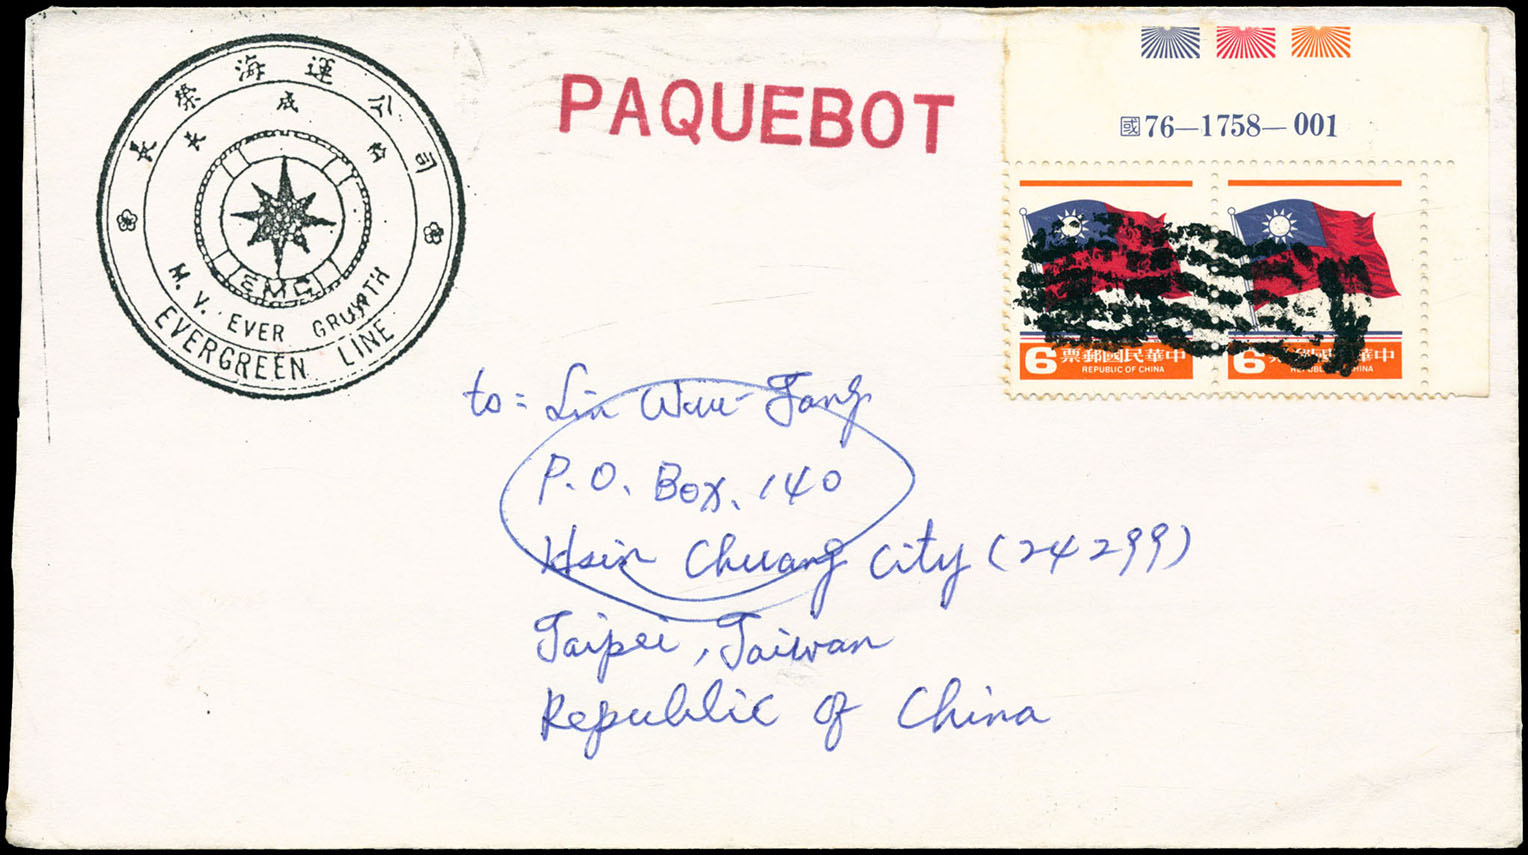 長榮海運公司
長成
EMC
M.V. EVER GROWTH
EVERGREEN LINE
PAQUEBOT
國76—1758—001
6 票郵國民華中
REPUBLIC OF CHINA
6 票 國民華中
REPUBLIC CHINA
to: Lin Wun-Tang
P.O. Box. 140
Hsin Chuang City (24299)
Taipei, Taiwan
Republic of China